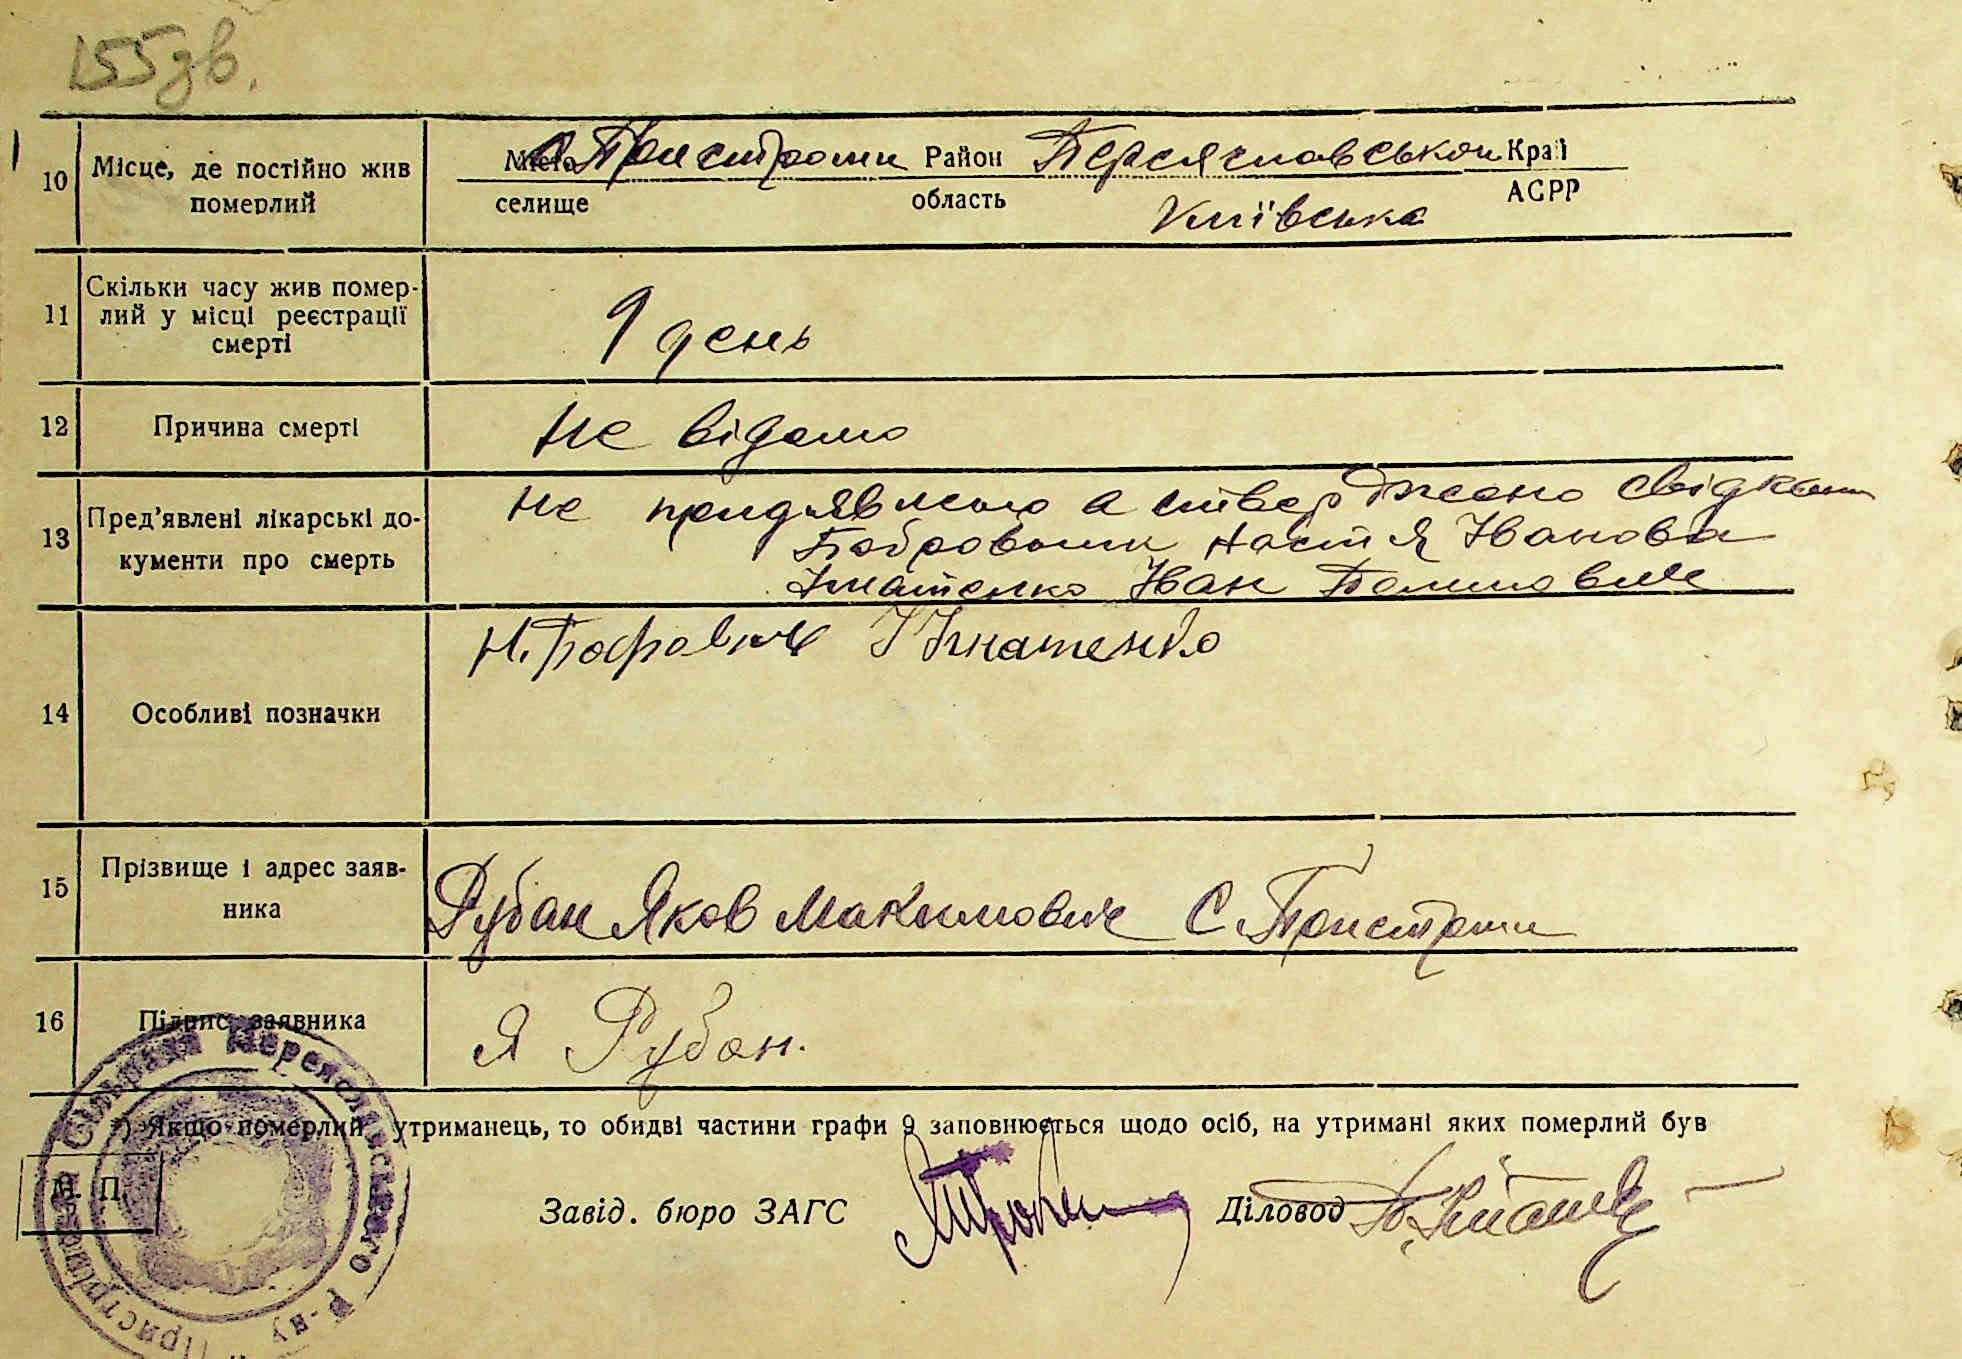 155зв.
10 Місце, де постійно жив померлий
Місто с. Пристроми Район Переяславськой Край
селище область Київська АСРР
11 Скільки часу жив помер-
лий у місці реєстрації
смерті
1 день
12 Причина смерті
Не відомо
13 Пред'явлені лікарські до-
кументи про смерть
Не предявлено а стверджено свідками
Настія Іванова
Ігнатенко Іван
Н. Ігнатенко
14 Особливі позначки
15 Прізвище і адрес заяв-
ника
Рубан Яков Макимович С. Пристроми
16 Підпис заявника
Я Рубан.
*) Якщо померлий утриманець, то обидві частини графи 9 заповнюється щодо осіб, на утримані яких померлий був
М. П.
Завід. бюро ЗАГС Діловод
Сільрада Переяславського Р-ну